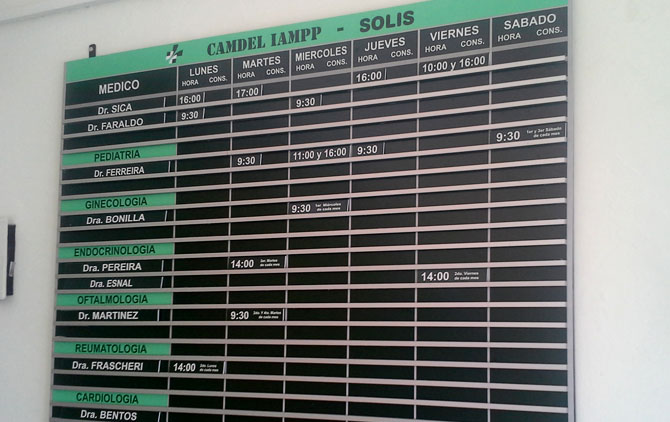 CAMDEL IAMPP - SOLIS
MEDICO LUNES MARTES MIERCOLES JUEVES VIERNES SABADO
HORA CONS. HORA CONS. HORA CONS. HORA CONS. HORA CONS. HORA CONS.
Dr. SICA 16:00 17:00 16:00 10:00 y 16:00
Dr. FARALDO 9:30 9:30
PEDIATRIA
Dr. FERREIRA 9:30 11:00 y 16:00 9:30 9:30 1er y 3er Sábado de cada mes
GINECOLOGIA
Dra. BONILLA 9:30 1er. Miércoles de cada mes
ENDOCRINOLOGIA
Dra. PEREIRA 14:00 Martes de cada mes
Dra. ESNAL 14:00 2do. Viernes de cada mes
OFTALMOLOGIA
Dr. MARTINEZ 9:30 2do. Y 4to. Martes de cada mes
REUMATOLOGIA
Dra. FRASCHERI 14:00 2do. Lunes de cada mes
CARDIOLOGIA
Dra. BENTOS